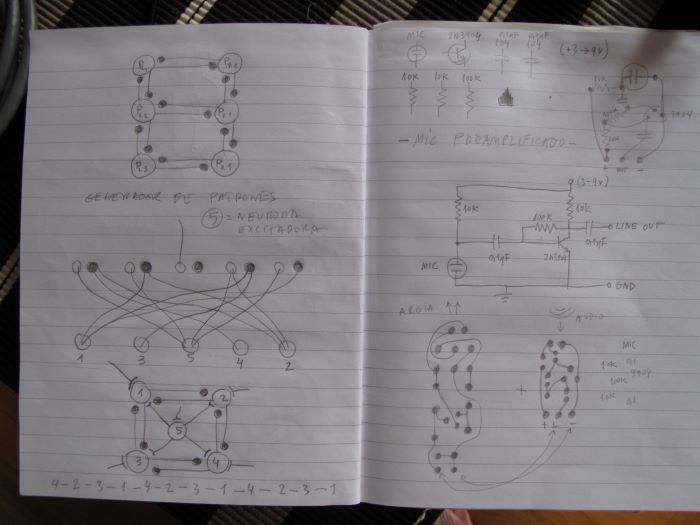 GENERADOR DE PATRONES
5 = NEURONA
EXCITADORA
1 3 5 4 2
1 2
5
3 4
4-2-3-1-4-2-3-1-4-2-3-1
MIC 2N3904 0,1µF 0,1µF (+3→9V)
104 104
10K 10K 100K
10K
+ OUT -
- MIC PREAMPLIFICADO -
(3-9V)
10K 10K
100K
LINE OUT
0,1µF 2N3904 0,1µF
MIC
GND
AUDIO
MIC
10K 01
3904
100K
10K 01
+ L -